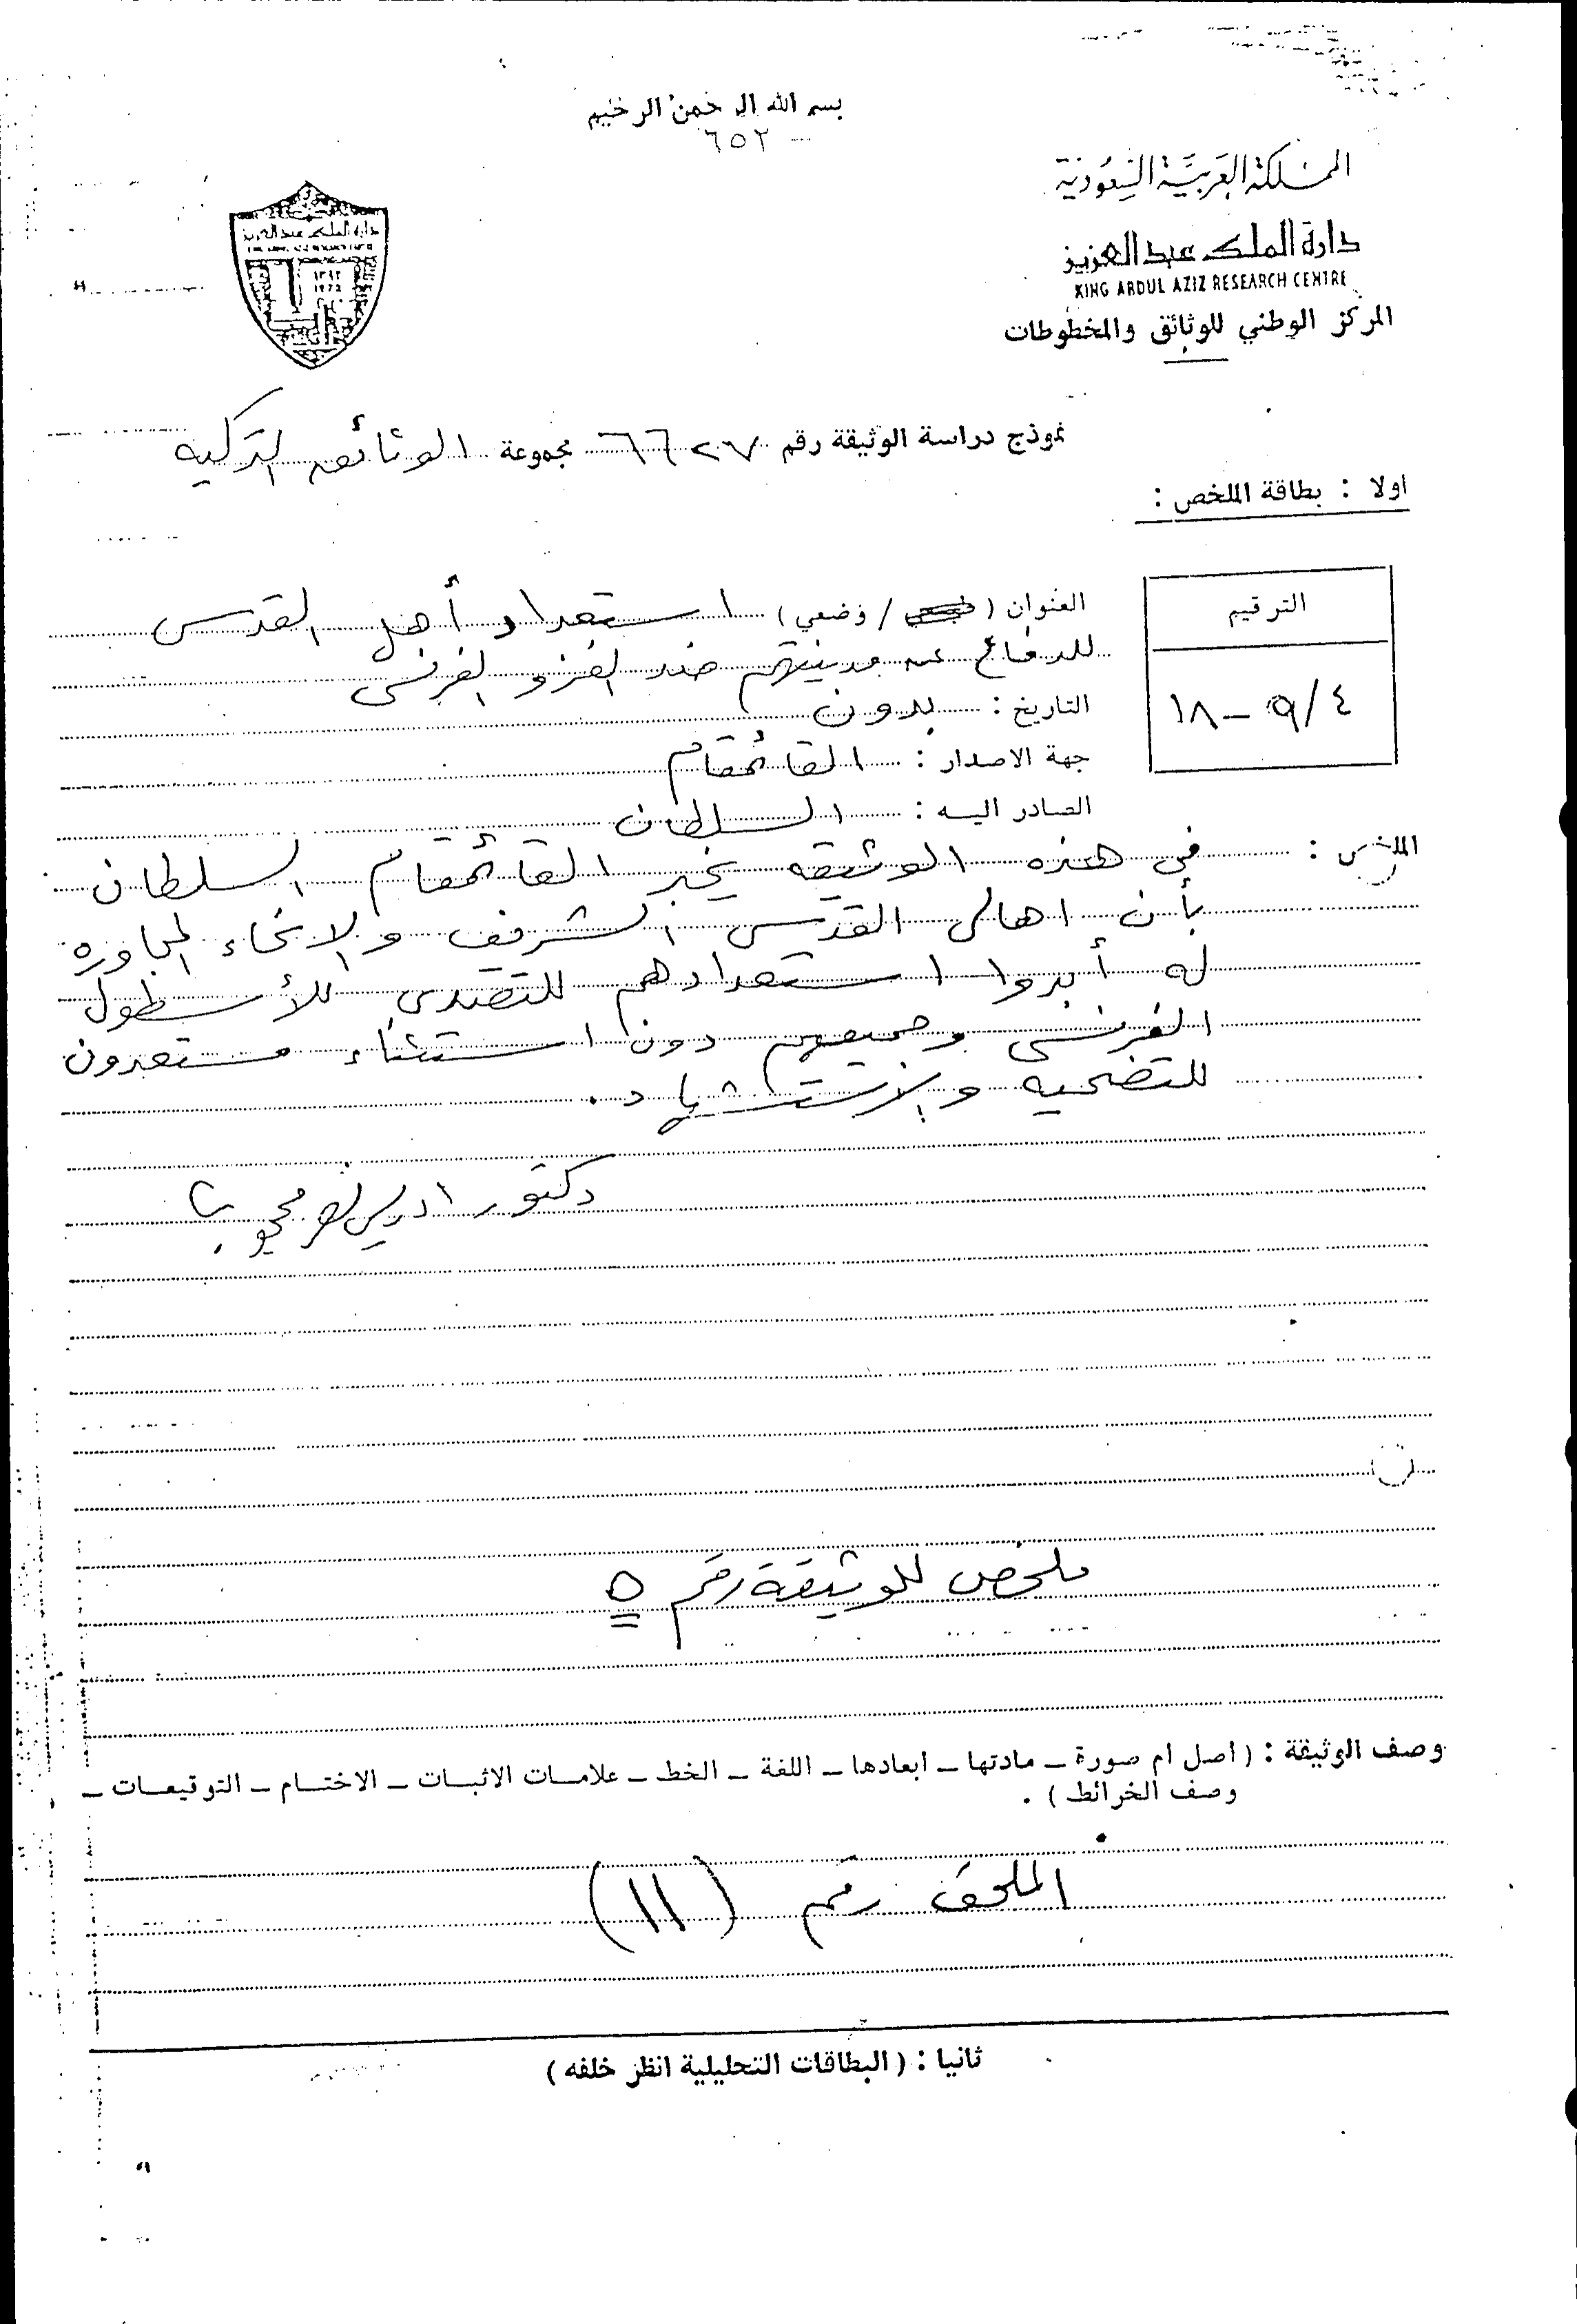 بسم الله الرحمن الرحيم
٦٥٢
المملكة العربية السعودية
دارة الملك عبد العزيز
KING ABDUL AZIZ RESEARCH CENTRE
المركز الوطني للوثائق والمخطوطات
دارة الملك عبد العزيز
١٣٩٢
١٩٧٢
نموذج دراسة الوثيقة رقم ٦٦٢٧ مجموعة الوثائق التركيه
اولا : بطاقة الملخص :
الترقيم
٤/٩ – ١٨
العنوان ( / وضعي) استعداد أهل القدس
للدفاع عن مدينتهم ضد الغزو الفرنسى
التاريخ : بدون
جهة الاصدار : القائمقام
الصادر اليه : السلطان
الملخص : فى هذه الوثيقه يخبر القائمقام السلطان
بأن اهالى القدس الشريف والانحاء المجاوره
له أبدوا استعدادهم للتصدى للأسطول
الفرنسى وجميعهم دون استثناء مستعدون
للتضحيه والاستشهاد.
دكتور ادريس نصر محجوب
ملخص للوثيقة رقم ٥
وصف الوثيقة : ( اصل ام صورة – مادتها – ابعادها – اللغة – الخط – علامات الاثبات – الاختام – التوقيعات –
وصف الخرائط ) .
الملحق رقم (١١)
ثانيا : ( البطاقات التحليلية انظر خلفه )